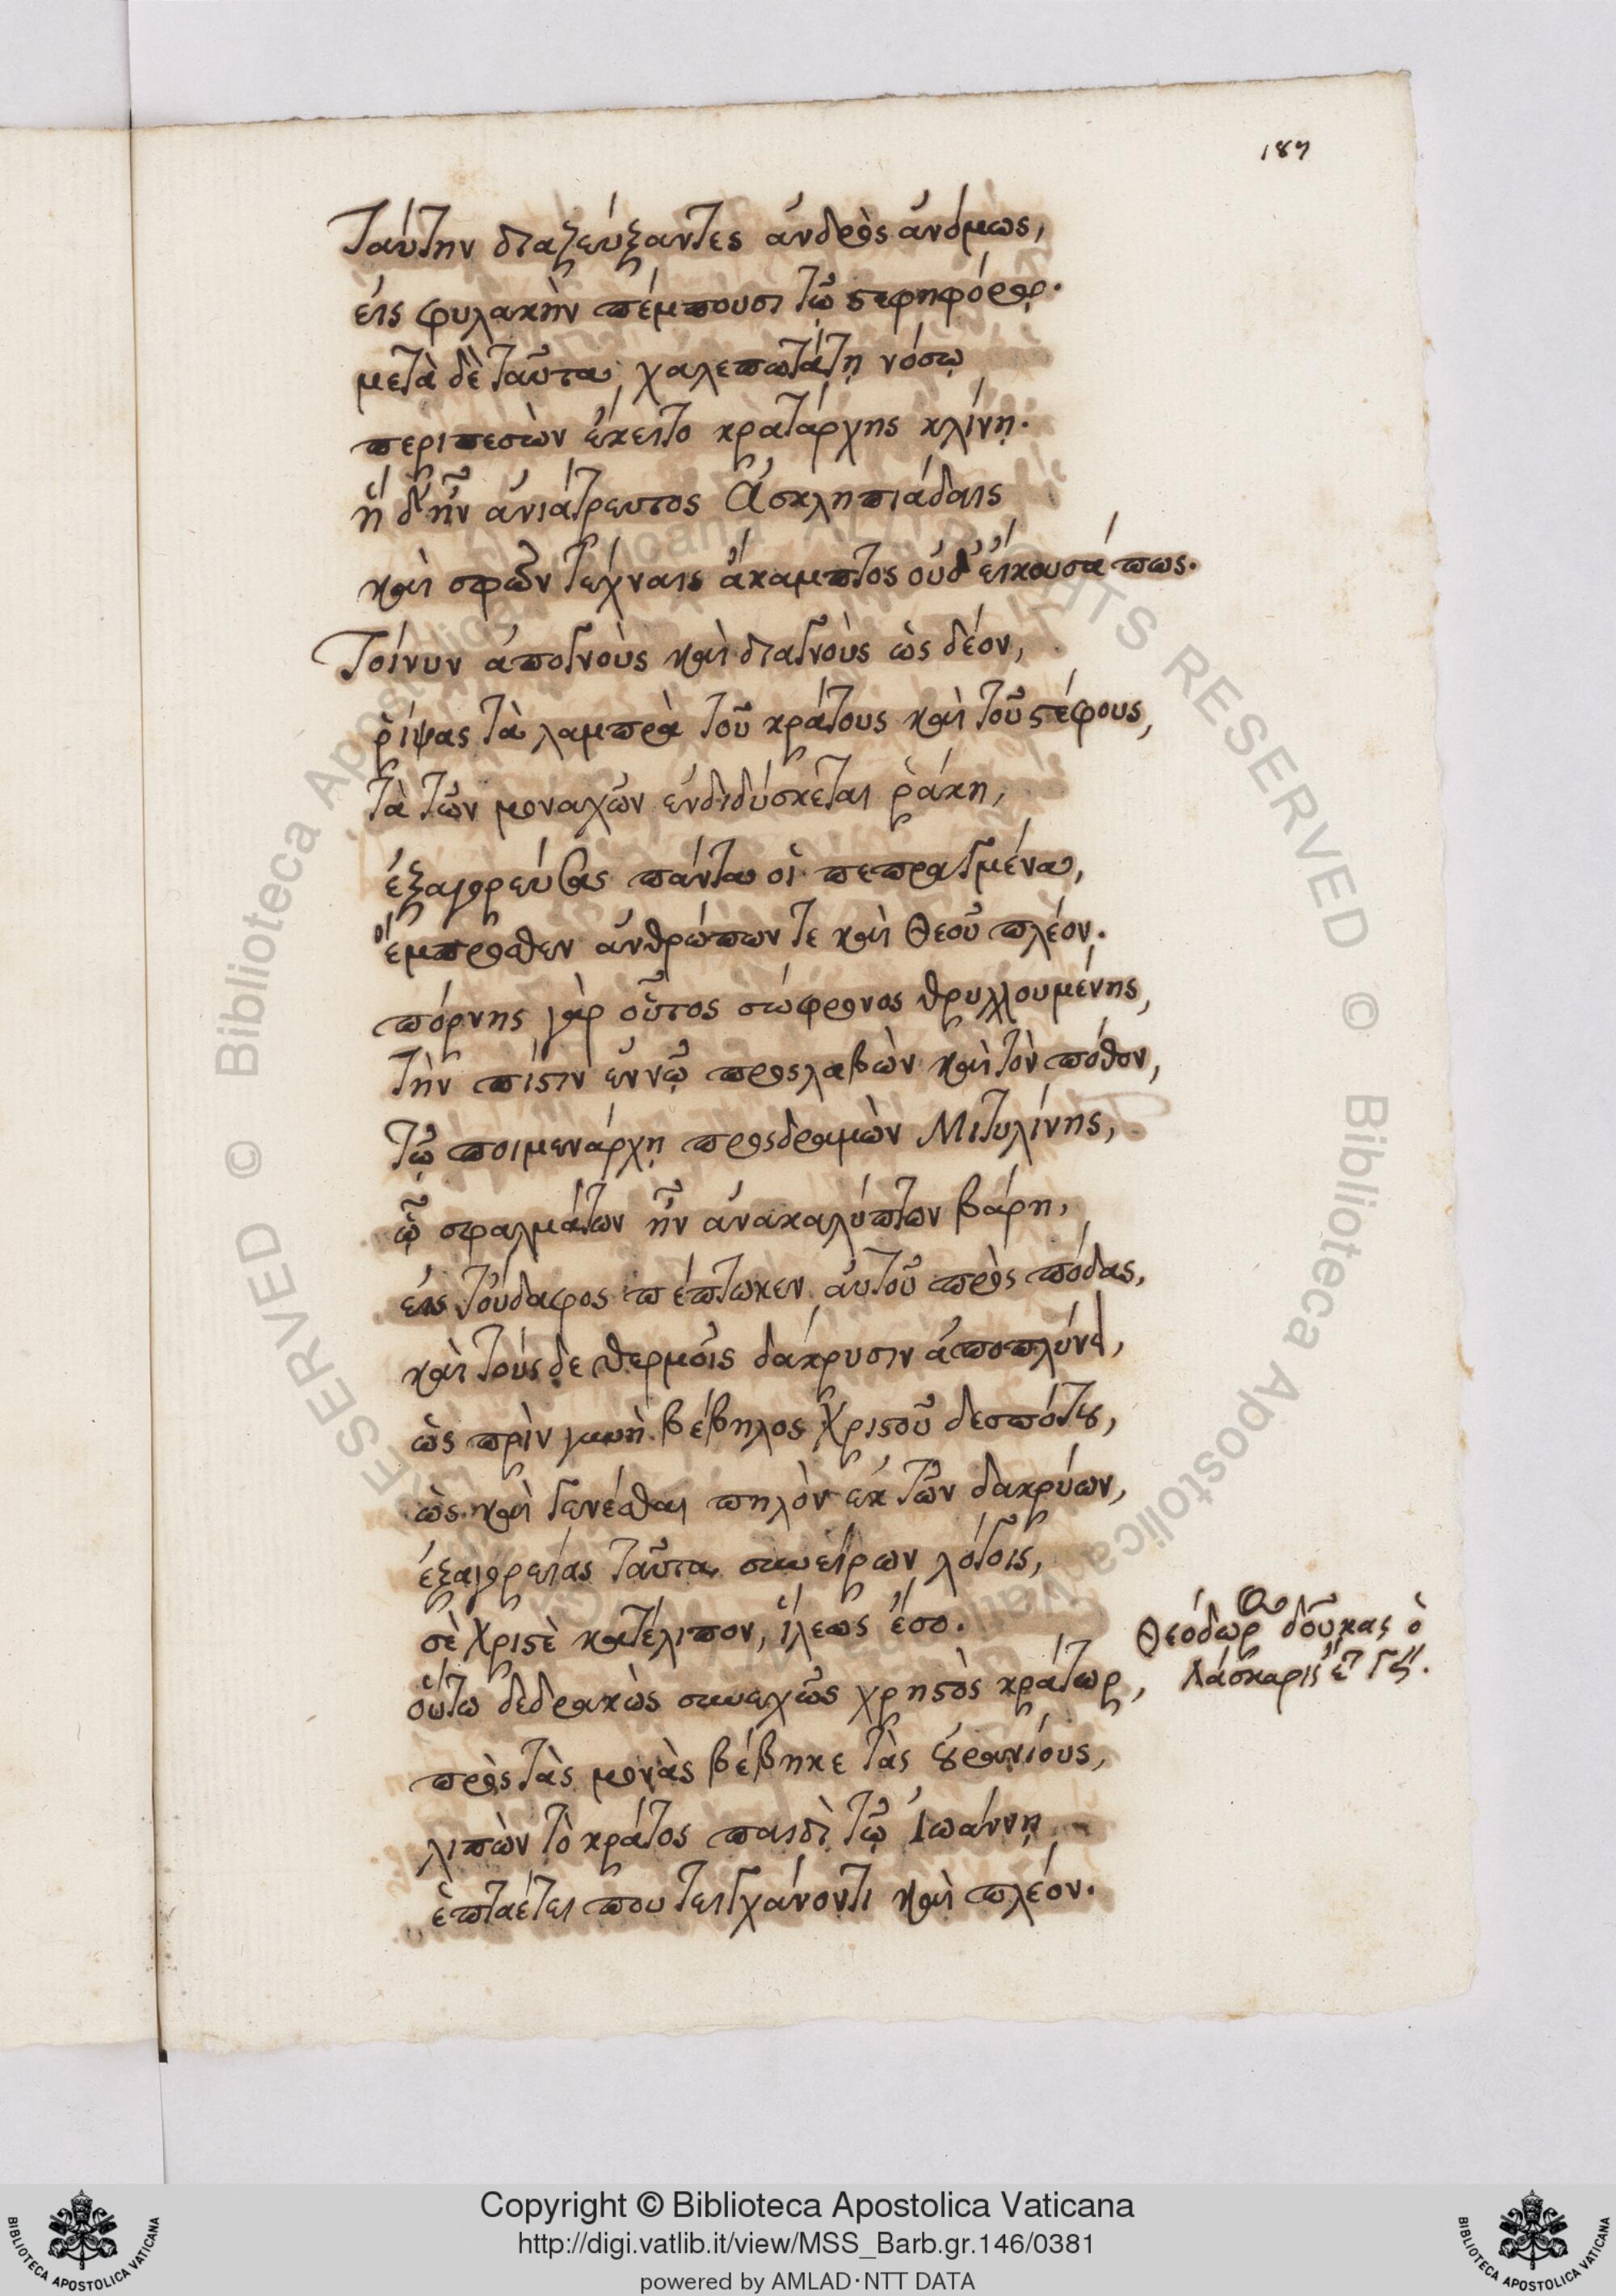 187
Ταύτην διαζεύξαντες ἀνδρὸς ἀνόμως,
εἰς φυλακὴν πέμπουσι τῷ στεφηφόρῳ.
μετὰ δὲ ταῦτα, χαλεπωτάτῃ νόσῳ
περιπεσὼν ἔκειτο κρατάρχης κλίνῃ.
ἡ δ' ἦν ἀνιάτρευτος Ἀσκληπιάδαις
καὶ σφῶν τέχναις ἄκαμπτος οὐδ' εἴκουσά πως.
Τοίνυν ἀπογνοὺς καὶ διαγνοὺς ὡς δέον,
ῥίψας τὰ λαμπρὰ τοῦ κράτους καὶ τοῦ στέφους,
τὰ τῶν μοναχῶν ἐνδιδύσκεται ῥάκη,
ἐξαγορεύσας πάντα οἱ πεπραγμένα,
ἔμπροσθεν ἀνθρώπων τε καὶ Θεοῦ πλέον.
πόρνης γὰρ οὗτος σώφρονος θρυλλουμένης,
τὴν πίστιν ἐννῷ προσλαβὼν καὶ τὸν πόθον,
τῷ ποιμενάρχῃ προσδραμὼν Μιτυλίνης,
ᾧ σφαλμάτων ἦν ἀνακαλύπτων βάρη,
εἰς τοὔδαφος πέπτωκεν αὐτοῦ πρὸς πόδας,
καὶ τούς δε θερμοῖς δάκρυσιν ἀποπλύνει,
ὡς πρὶν γυνὴ βέβηλος Χριστοῦ δεσπότου,
ὡς καὶ γενέσθαι πηλὸν ἐκ τῶν δακρύων,
ἐξαγορείας ταῦτα συνείρων λόγοις,
σὲ Χριστὲ κατέλιπον, ἵλεως ἔσο.
οὕτω δεδρακὼς συνεχῶς χρηστὸς κράτωρ,
πρὸς τὰς μονὰς βέβηκε τὰς οὐρανίους,
λιπὼν τὸ κράτος παιδὶ τῷ Ἰωάννῃ
ἑπταέτει που τειγχάνοντι καὶ πλέον.
Θεόδωρος δούκας ὁ
Λάσκαρις
Copyright © Biblioteca Apostolica Vaticana
http://digi.vatlib.it/view/MSS_Barb.gr.146/0381
powered by AMLAD·NTT DATA